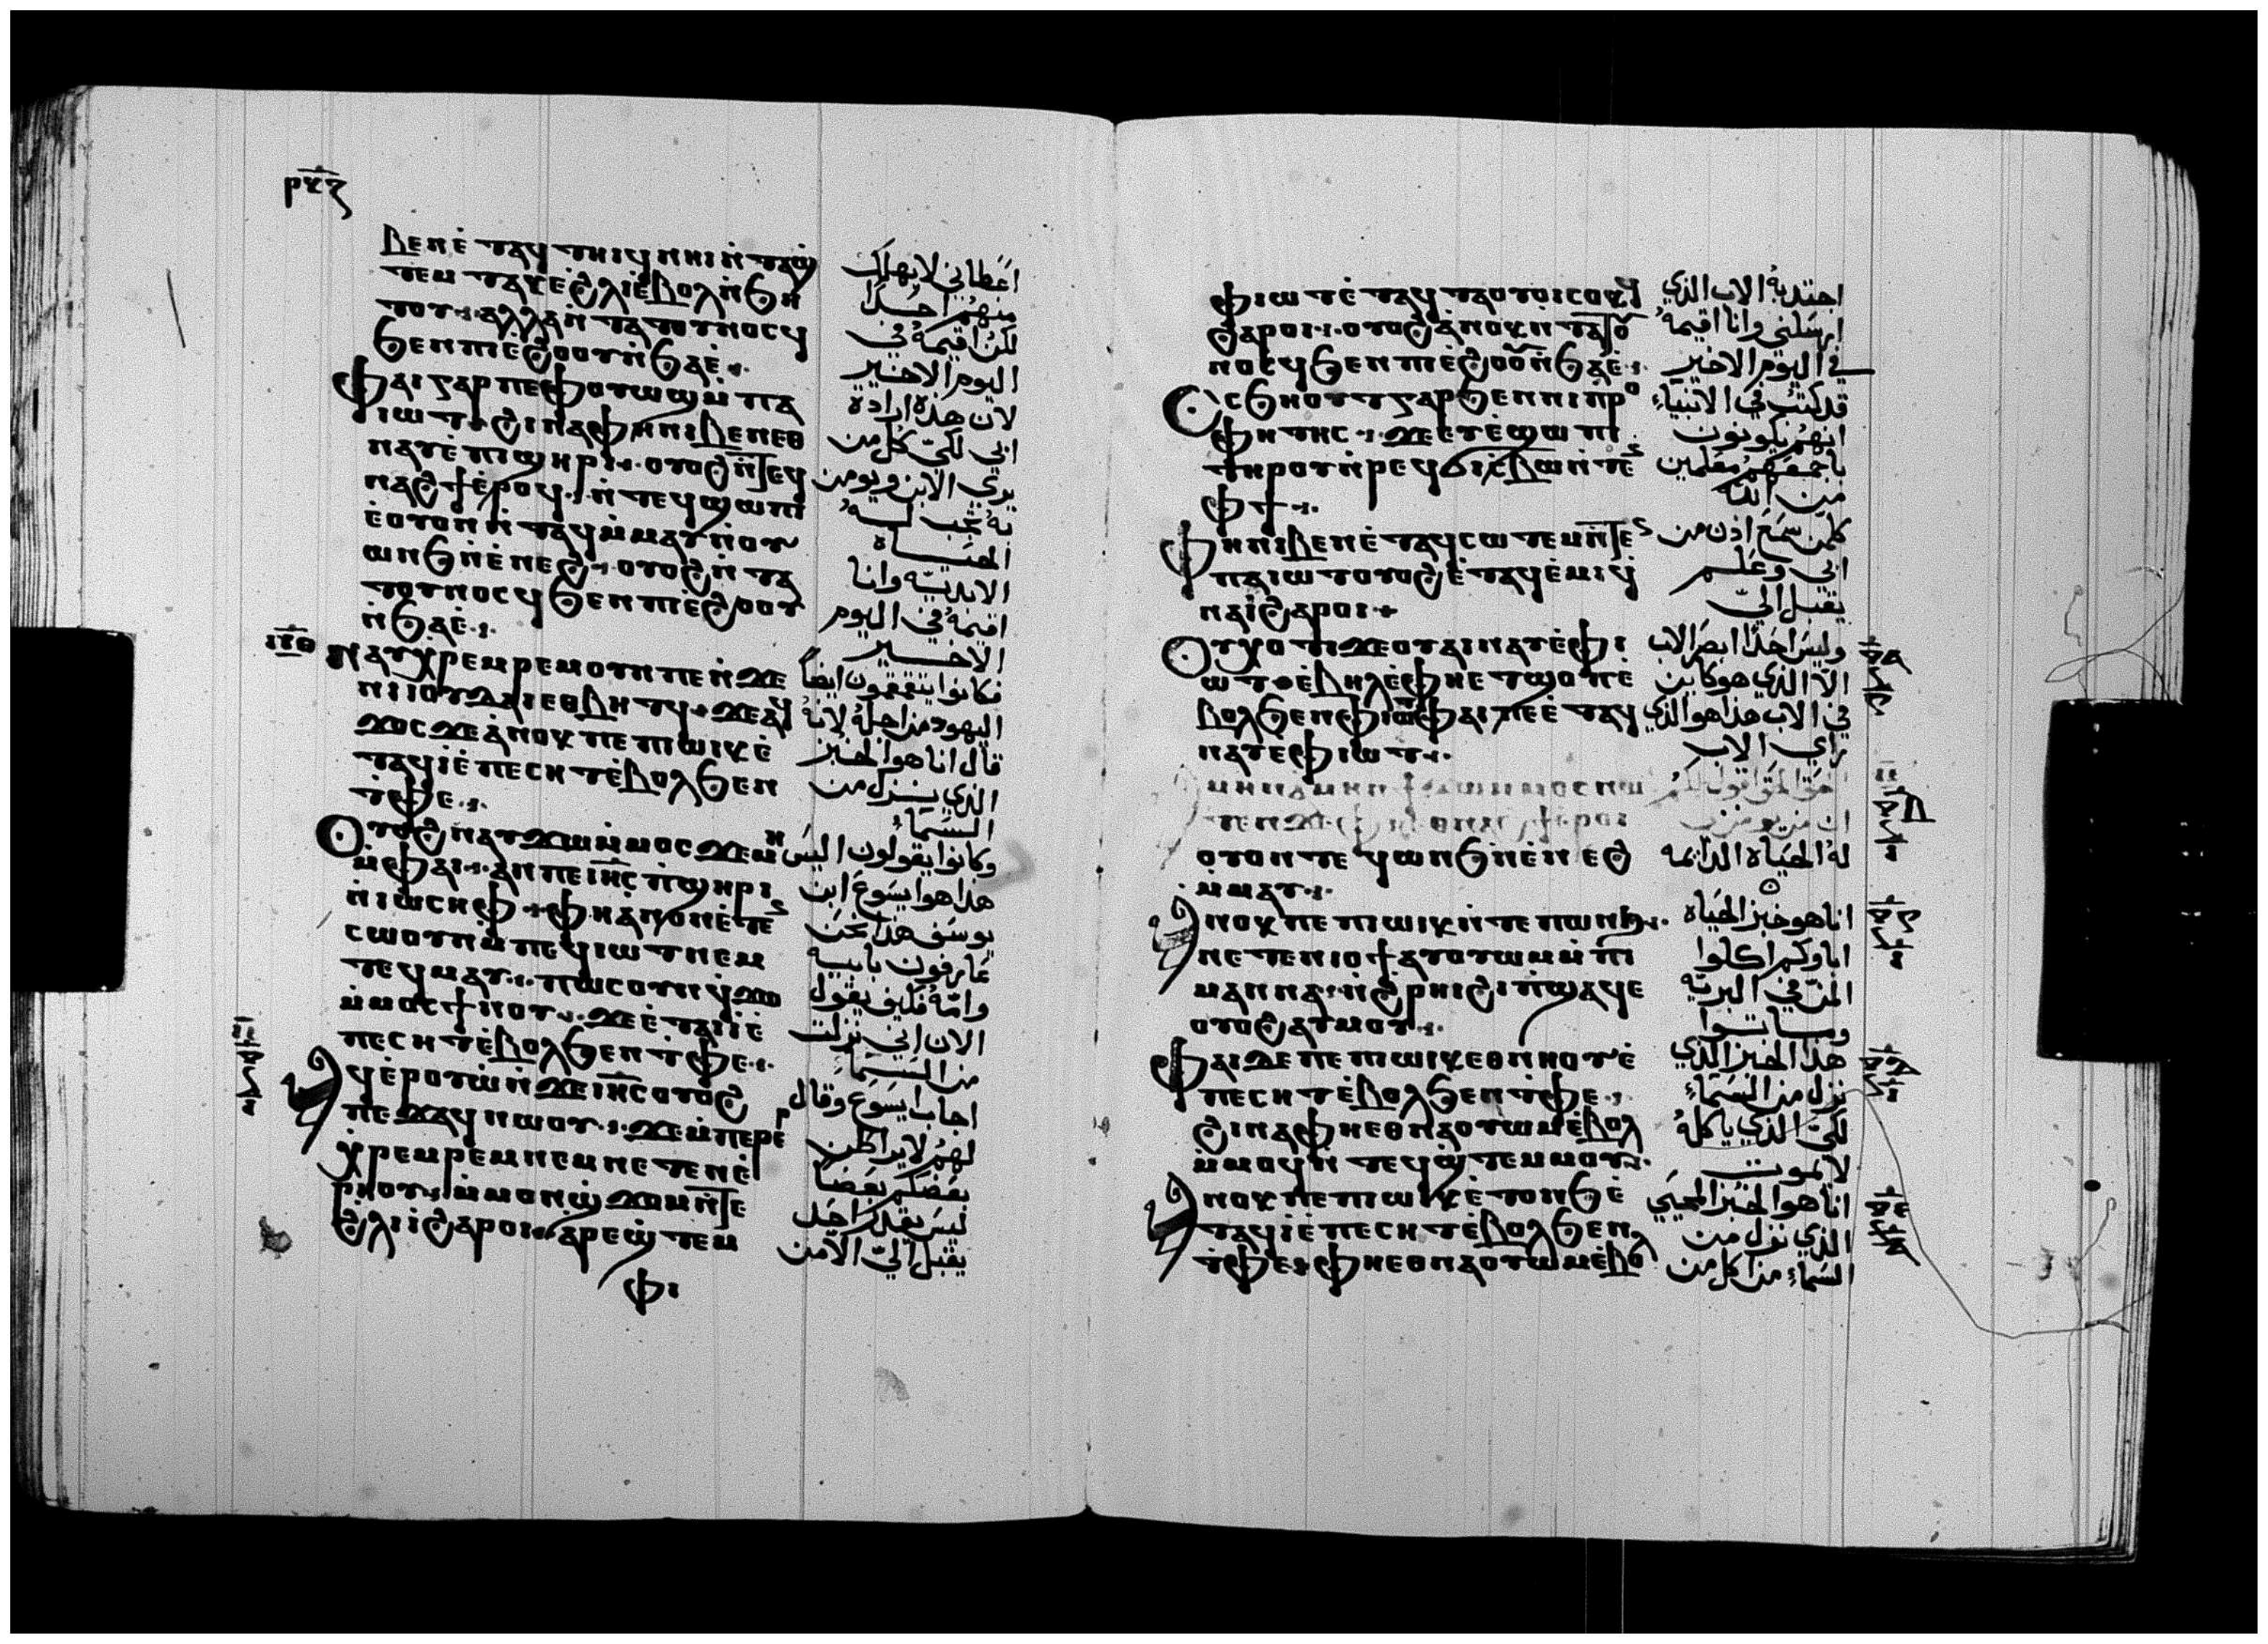 ⲣⲝⲍ
ⲃⲉⲛ ⲉ̇ⲧⲁϥⲧⲏⲓϥ ⲛⲏⲓ ⲛ̇ⲧⲁϣ̇
ⲧⲉⲙⲧⲁⲕⲉ ϩ̇ⲗⲓ ⲉ̇ⲃⲟⲗ ⲛ̇ϧⲏ
ⲧⲟⲩ ⲁⲗⲗⲁ ⲛ̇ⲧⲁⲧⲟⲩⲛⲟⲥϥ
ϧⲉⲛ ⲡⲓⲉ̇ϩⲟⲟⲩ ⲛ̇ϧⲁⲉ̇
ⲫⲁⲓ ⲅⲁⲣ ⲡⲉ ⲫⲟⲩⲱϣ ⲙ̇ⲡⲁ
ⲓⲱⲧ ϩⲓⲛⲁ ⲫⲏ ⲛⲓⲃⲉⲛ ⲉⲑ
ⲛⲁⲩ ⲉ̇ⲡⲓϣⲏⲣⲓ ⲟⲩⲟϩ ⲛ̇ⲧⲉϥ
ⲛⲁϩϯ ⲉ̇ⲣⲟϥ ⲛ̇ⲧⲉϥϣⲱⲡⲓ
ⲉ̇ⲟⲩⲟⲛ ⲛ̇ⲧⲁϥ ⲙ̇ⲙⲁⲩ ⲛ̇ⲟⲩ
ⲱⲛϧ ⲛ̇ⲉ̇ⲛⲉϩ ⲟⲩⲟϩ ⲛ̇ⲧⲁ
ⲧⲟⲩⲛⲟⲥϥ ϧⲉⲛ ⲡⲓⲉ̇ϩⲟⲟⲩ
ⲛ̇ϧⲁⲉ̇
ⲛⲁⲩⲭⲣⲉⲙⲣⲉⲙ ⲟⲩⲛ ⲡⲉ ⲛ̇ϫⲉ
ⲛⲓⲓⲟⲩⲇⲁⲓ ⲉⲑⲃⲏⲧϥ ϫⲉ ⲁϥ
ϫⲟⲥ ϫⲉ ⲁ̇ⲛⲟⲕ ⲡⲉ ⲡⲓⲱⲓⲕ ⲉ̇
ⲧⲁϥⲓ̇ ⲉ̇ⲡⲉⲥⲏⲧ ⲉ̇ⲃⲟⲗ ϧⲉⲛ
ⲧ̇ⲫⲉ
ⲟⲩⲟϩ ⲛⲁⲩϫⲱ ⲙ̇ⲙⲟⲥ ϫⲉ ⲙⲏ
ⲙ̇ⲫⲁⲓ ⲁⲛ ⲡⲉ ⲓⲏⲥ ⲡ̇ϣⲏⲣⲓ
ⲛ̇ⲓⲱⲥⲏⲫ ⲫⲏ ⲁ̇ⲛⲟⲛ ⲉ̇ⲧⲉⲛ
ⲥⲱⲟⲩⲛ ⲙ̇ⲡⲉϥⲓⲱⲧ ⲛⲉⲙ
ⲧⲉϥⲙⲁⲩ ⲡⲱⲥ ⲟⲩⲛ ϥϫⲱ
ⲙ̇ⲙⲟⲥ ϯⲛⲟⲩ ϫⲉ ⲉ̇ⲧⲁⲓⲓ̇ ⲉ̇
ⲡⲉⲥⲏⲧ ⲉ̇ⲃⲟⲗ ϧⲉⲛ ⲧ̇ⲫⲉ
ⲁϥⲉ̇ⲣⲟⲩⲱ̇ ⲛ̇ϫⲉ ⲓⲏⲥ ⲟⲩⲟϩ
ⲡⲉϫⲁϥ ⲛⲱⲟⲩ ϫⲉ ⲙ̇ⲡⲉⲣⲉⲣ
ⲭⲣⲉⲙⲣⲉⲙ ⲛⲉⲙ ⲛⲉⲧⲉⲛⲉ̇
ⲣⲏⲟⲩ ⲙ̇ⲙⲟⲛ ϣ̇ϫⲟⲙ ⲛ̇ⲧⲉ
ϩ̇ⲗⲓ ⲓ̇ ϩⲁⲣⲟⲓ ⲁ̇ⲣⲉϣ̇ⲧⲉⲙ
ⲫⲓ
اعطاني لا يهلك
منهم احدا
لكن اقيمه في
اليوم الاخير
لان هذه ارادة
ابي لكي كل من
يري الابن ويومن
به تجب له
الحياة
الابدية وانا
اقيمه في اليوم
الاخير
فكانوا يتقمقمون ايضا
اليهود من اجله لانه
قال انا هو الخبز
الذي ينزل من
السماء
وكانوا يقولون اليس
هذا هو ايسوع ابن
يوسف هذا نحن
عارفون بابيه
وامه فكيف يقول
الان اني نزلت
من السماء
اجاب ايسوع وقال
لهم لا يراطن
بعضكم بعضا
ليس يقدر احد
يقبل الي الا من
ⲫⲓⲱⲧ ⲉ̇ⲧⲁϥⲧⲁⲟⲩⲟⲓ ⲥⲟⲕϥ
ϩⲁⲣⲟⲓ ⲟⲩⲟϩ ⲁ̇ⲛⲟⲕ ⲛ̇ⲧⲁⲧⲟⲩ
ⲛⲟⲥϥ ϧⲉⲛ ⲡⲓⲉ̇ϩⲟⲟⲩ ⲛ̇ϧⲁⲉ̇
ⲥϧⲏⲟⲩⲧ ⲅⲁⲣ ϧⲉⲛ ⲛⲓⲡ̇ⲣⲟ
ⲫⲏⲧⲏⲥ ϫⲉ ⲉⲩⲉ̇ϣⲱⲡⲓ
ⲧⲏⲣⲟⲩ ⲛ̇ⲣⲉϥϭⲓⲥ̇ⲃⲱ ⲛ̇ⲧⲉ
ⲫϯ
ⲫⲏ ⲛⲓⲃⲉⲛ ⲉ̇ⲧⲁϥⲥⲱⲧⲉⲙ ⲛ̇ⲧⲉⲛ
ⲡⲁⲓⲱⲧ ⲟⲩⲟϩ ⲉ̇ⲧⲁϥⲉ̇ⲙⲓ ϥ
ⲛⲁⲓ̇ ϩⲁⲣⲟⲓ
ⲟⲩⲭ ⲟⲧⲓ ϫⲉ ⲟⲩⲁⲓ ⲛⲁⲩ ⲉ̇ⲫⲓ
ⲱⲧ ⲉ̇ⲃⲏⲗ ⲉ̇ⲫⲏ ⲉⲧϣⲟⲡ ⲉ̇
ⲃⲟⲗ ϧⲉⲛ ⲫⲓⲱⲧ ⲫⲁⲓ ⲡⲉ ⲉ̇ⲧⲁϥ
ⲛⲁⲩ ⲉⲫⲓⲱⲧ
ⲁⲙⲏⲛ ⲁⲙⲏⲛ ϯϫⲱ ⲙⲙⲟⲥ ⲛⲱ
ⲧⲉⲛ ϫⲉ ⲫⲏ ⲉⲑⲛⲁϩϯ ⲉ̇ⲣⲟⲓ
ⲟⲩⲟⲛⲧⲉϥ ⲱⲛϧ ⲛ̇ⲉ̇ⲛⲉϩ
ⲙ̇ⲙⲁⲩ
ⲁⲛⲟⲕ ⲡⲉ ⲡⲓⲱⲓⲕ ⲛ̇ⲧⲉ ⲡⲱⲛϧ
ⲛⲉⲧⲉⲛⲓⲟϯ ⲁⲩⲟⲩⲱⲙ ⲙ̇ⲡⲓ
ⲙⲁⲛⲛⲁ ⲛ̇ϩ̇ⲣⲏⲓ ϩⲓ ⲡ̇ϣⲁϥⲉ
ⲟⲩⲟϩ ⲁⲩⲙⲟⲩ
ⲫⲁⲓ ⲇⲉ ⲡⲉ ⲡⲓⲱⲓⲕ ⲉⲑⲛⲏⲟⲩ ⲉ̇
ⲡⲉⲥⲏⲧ ⲉ̇ⲃⲟⲗ ϧⲉⲛ ⲧ̇ⲫⲉ
ϩⲓⲛⲁ ⲫⲏ ⲉⲑⲛⲁⲟⲩⲱⲙ ⲉ̇ⲃⲟⲗ
ⲙ̇ⲙⲟϥ ⲛ̇ⲧⲉϥϣ̇ⲧⲉⲙⲙⲟⲩ
ⲁⲛⲟⲕ ⲡⲉ ⲡⲓⲱⲓⲕ ⲉ̇ⲧⲟⲛϧ ⲉ̇
ⲧⲁϥⲓ̇ ⲉ̇ⲡⲉⲥⲏⲧ ⲉ̇ⲃⲟⲗ ϧⲉⲛ
ⲧ̇ⲫⲉ ⲫⲏ ⲉⲑⲛⲁⲟⲩⲱⲙ ⲉ̇ⲃⲟⲗ
اجتذبه الاب الذي
ارسلني وانا اقيمه
في اليوم الاخير
قد كتب في الانبياء
انهم يكونون
باجمعهم معلمين
من الله
كلمن سمع اذن من
ابي وعلم
يقبل الي
وليس احدا ابصر الاب
الا الذي هو كاين
في الاب هذا هو الذي
راي الاب
الحق الحق اقول لكم
ان من يومن بي
له الحياة الدايمه
انا هو خبز الحياة
اباوكم اكلوا
المن في البريه
وماتوا
هذا الخبز الذي
نزل من السماء
لكي الذي ياكله
لا يموت
انا هو الخبز المحيي
الذي نزل من
السماء من اكل من